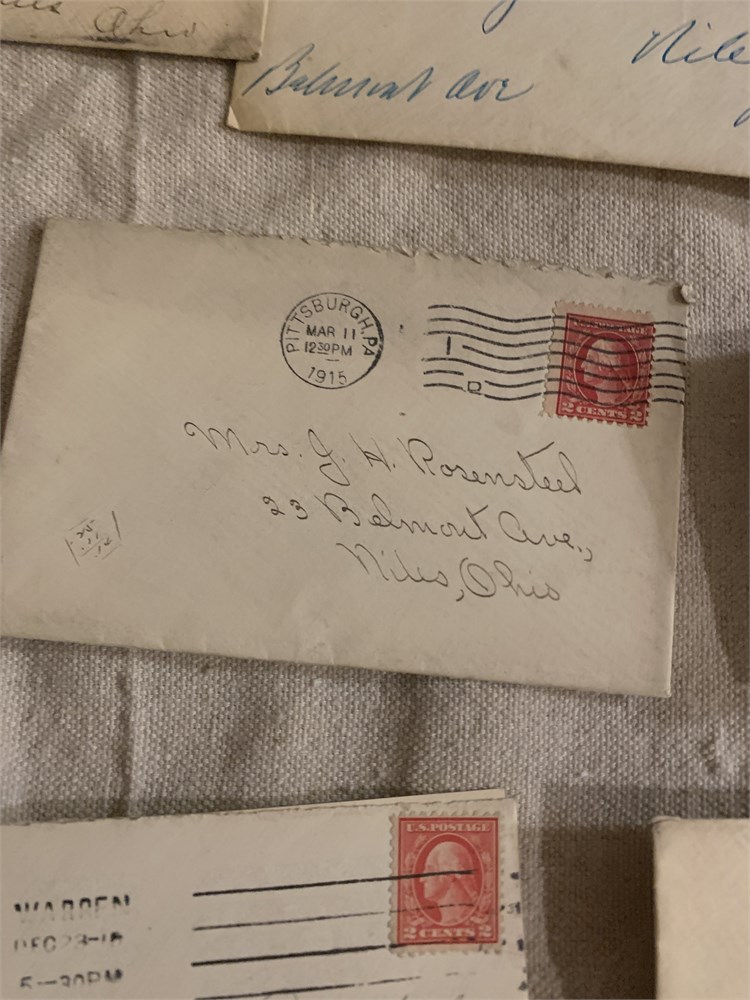 Ohio
Belmont Ave
Nile
PITTSBURGH, PA
MAR 11
12 30 PM
1915
1
D
U.S. POSTAGE
2 CENTS 2
Mrs. J. H. Rosensteel
23 Belmont Ave.,
Niles, Ohio
U.S. POSTAGE
2 CENTS 2
WARREN
DEC 23-15
5-30PM